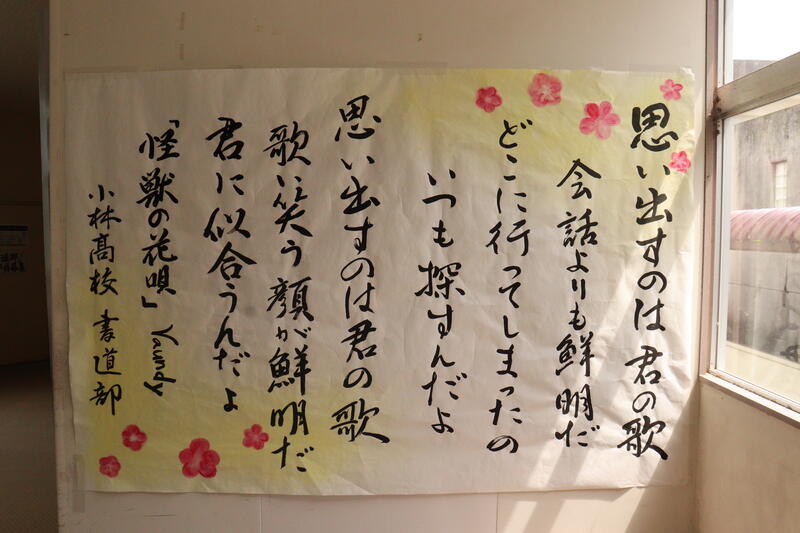 思い出すのは君の歌
会話よりも鮮明だ
どこに行ってしまったの
いつも探すんだよ
思い出すのは君の歌
歌い笑う顔が鮮明だ
君に似合うんだよ
「怪獣の花唄」 Vaundy
小林高校 書道部